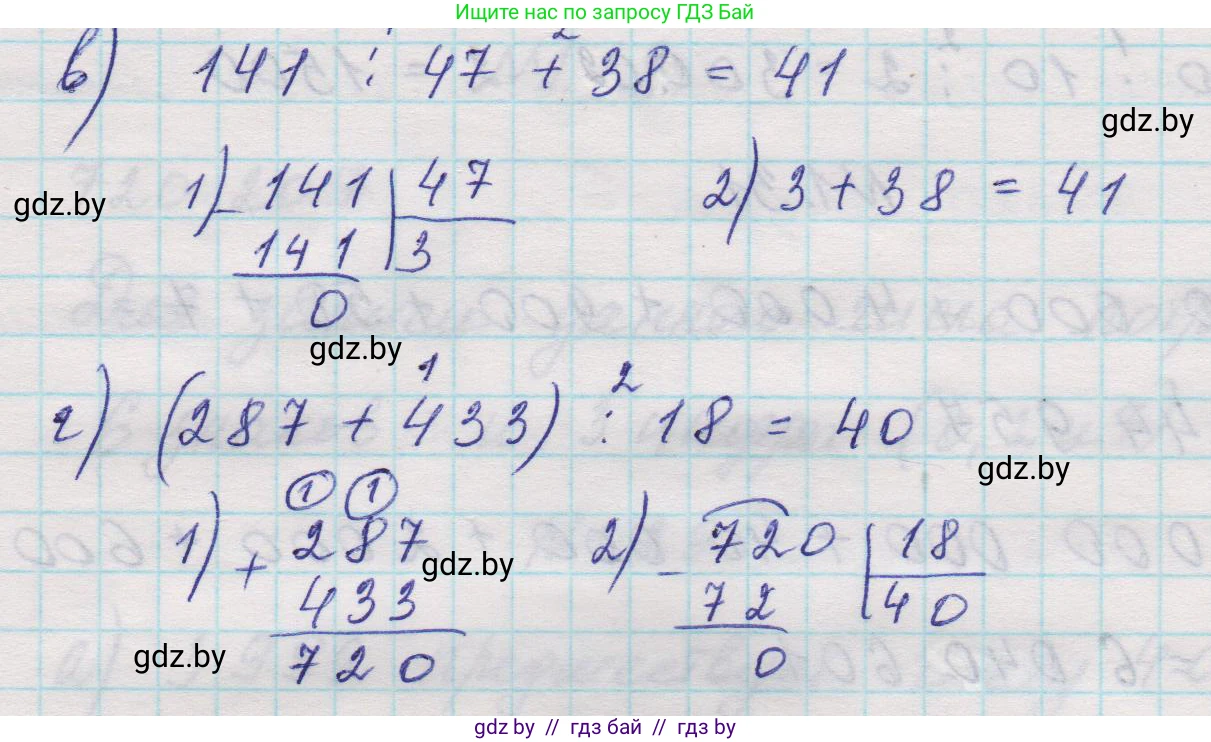 Ищите нас по запросу ГДЗ Бай
2
в) 141 : 47 + 38 = 41
gdz.by
1) − 141 | 47 2) 3 + 38 = 41
gdz.by
141 | 3
0
gdz.by
1 2
г) (287 + 433) : 18 = 40
gdz.by
1 1
1) + 287 2) − 720 | 18
gdz.by
433 72 | 40
720 0
gdz.by
gdz.by // гдз бай // гдз by